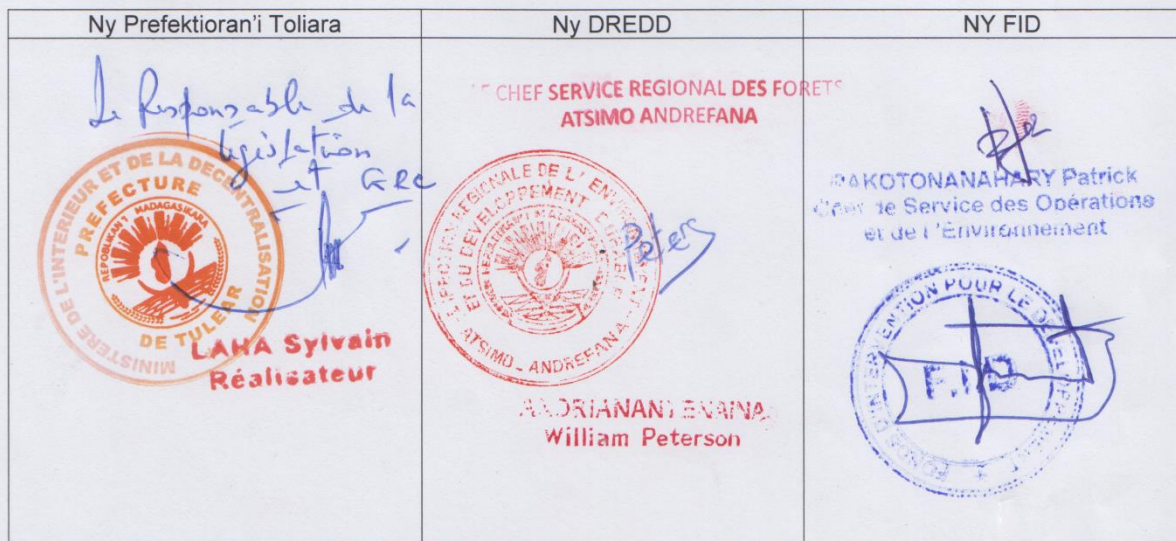 Ny Prefektioran'i Toliara
Le Responsable de la
législation
et GRC
MINISTERE DE L'INTERIEUR ET DE LA DECENTRALISATION
PREFECTURE
DE TULEAR
REPOBLIKAN'I MADAGASIKARA
LAHA Sylvain
Réalisateur
Ny DREDD
CHEF SERVICE REGIONAL DES FORETS
ATSIMO ANDREFANA
REGIONALE DE L'
ET DU DEVELOPPEMENT
ATSIMO - ANDREFANA
Peters
William Peterson
NY FID
RAKOTONANAHARY Patrick
Chef de Service des Opérations
et de l'Environnement
FONDS D'INTERVENTION POUR LE DEVELOPPEMENT
F.I.D